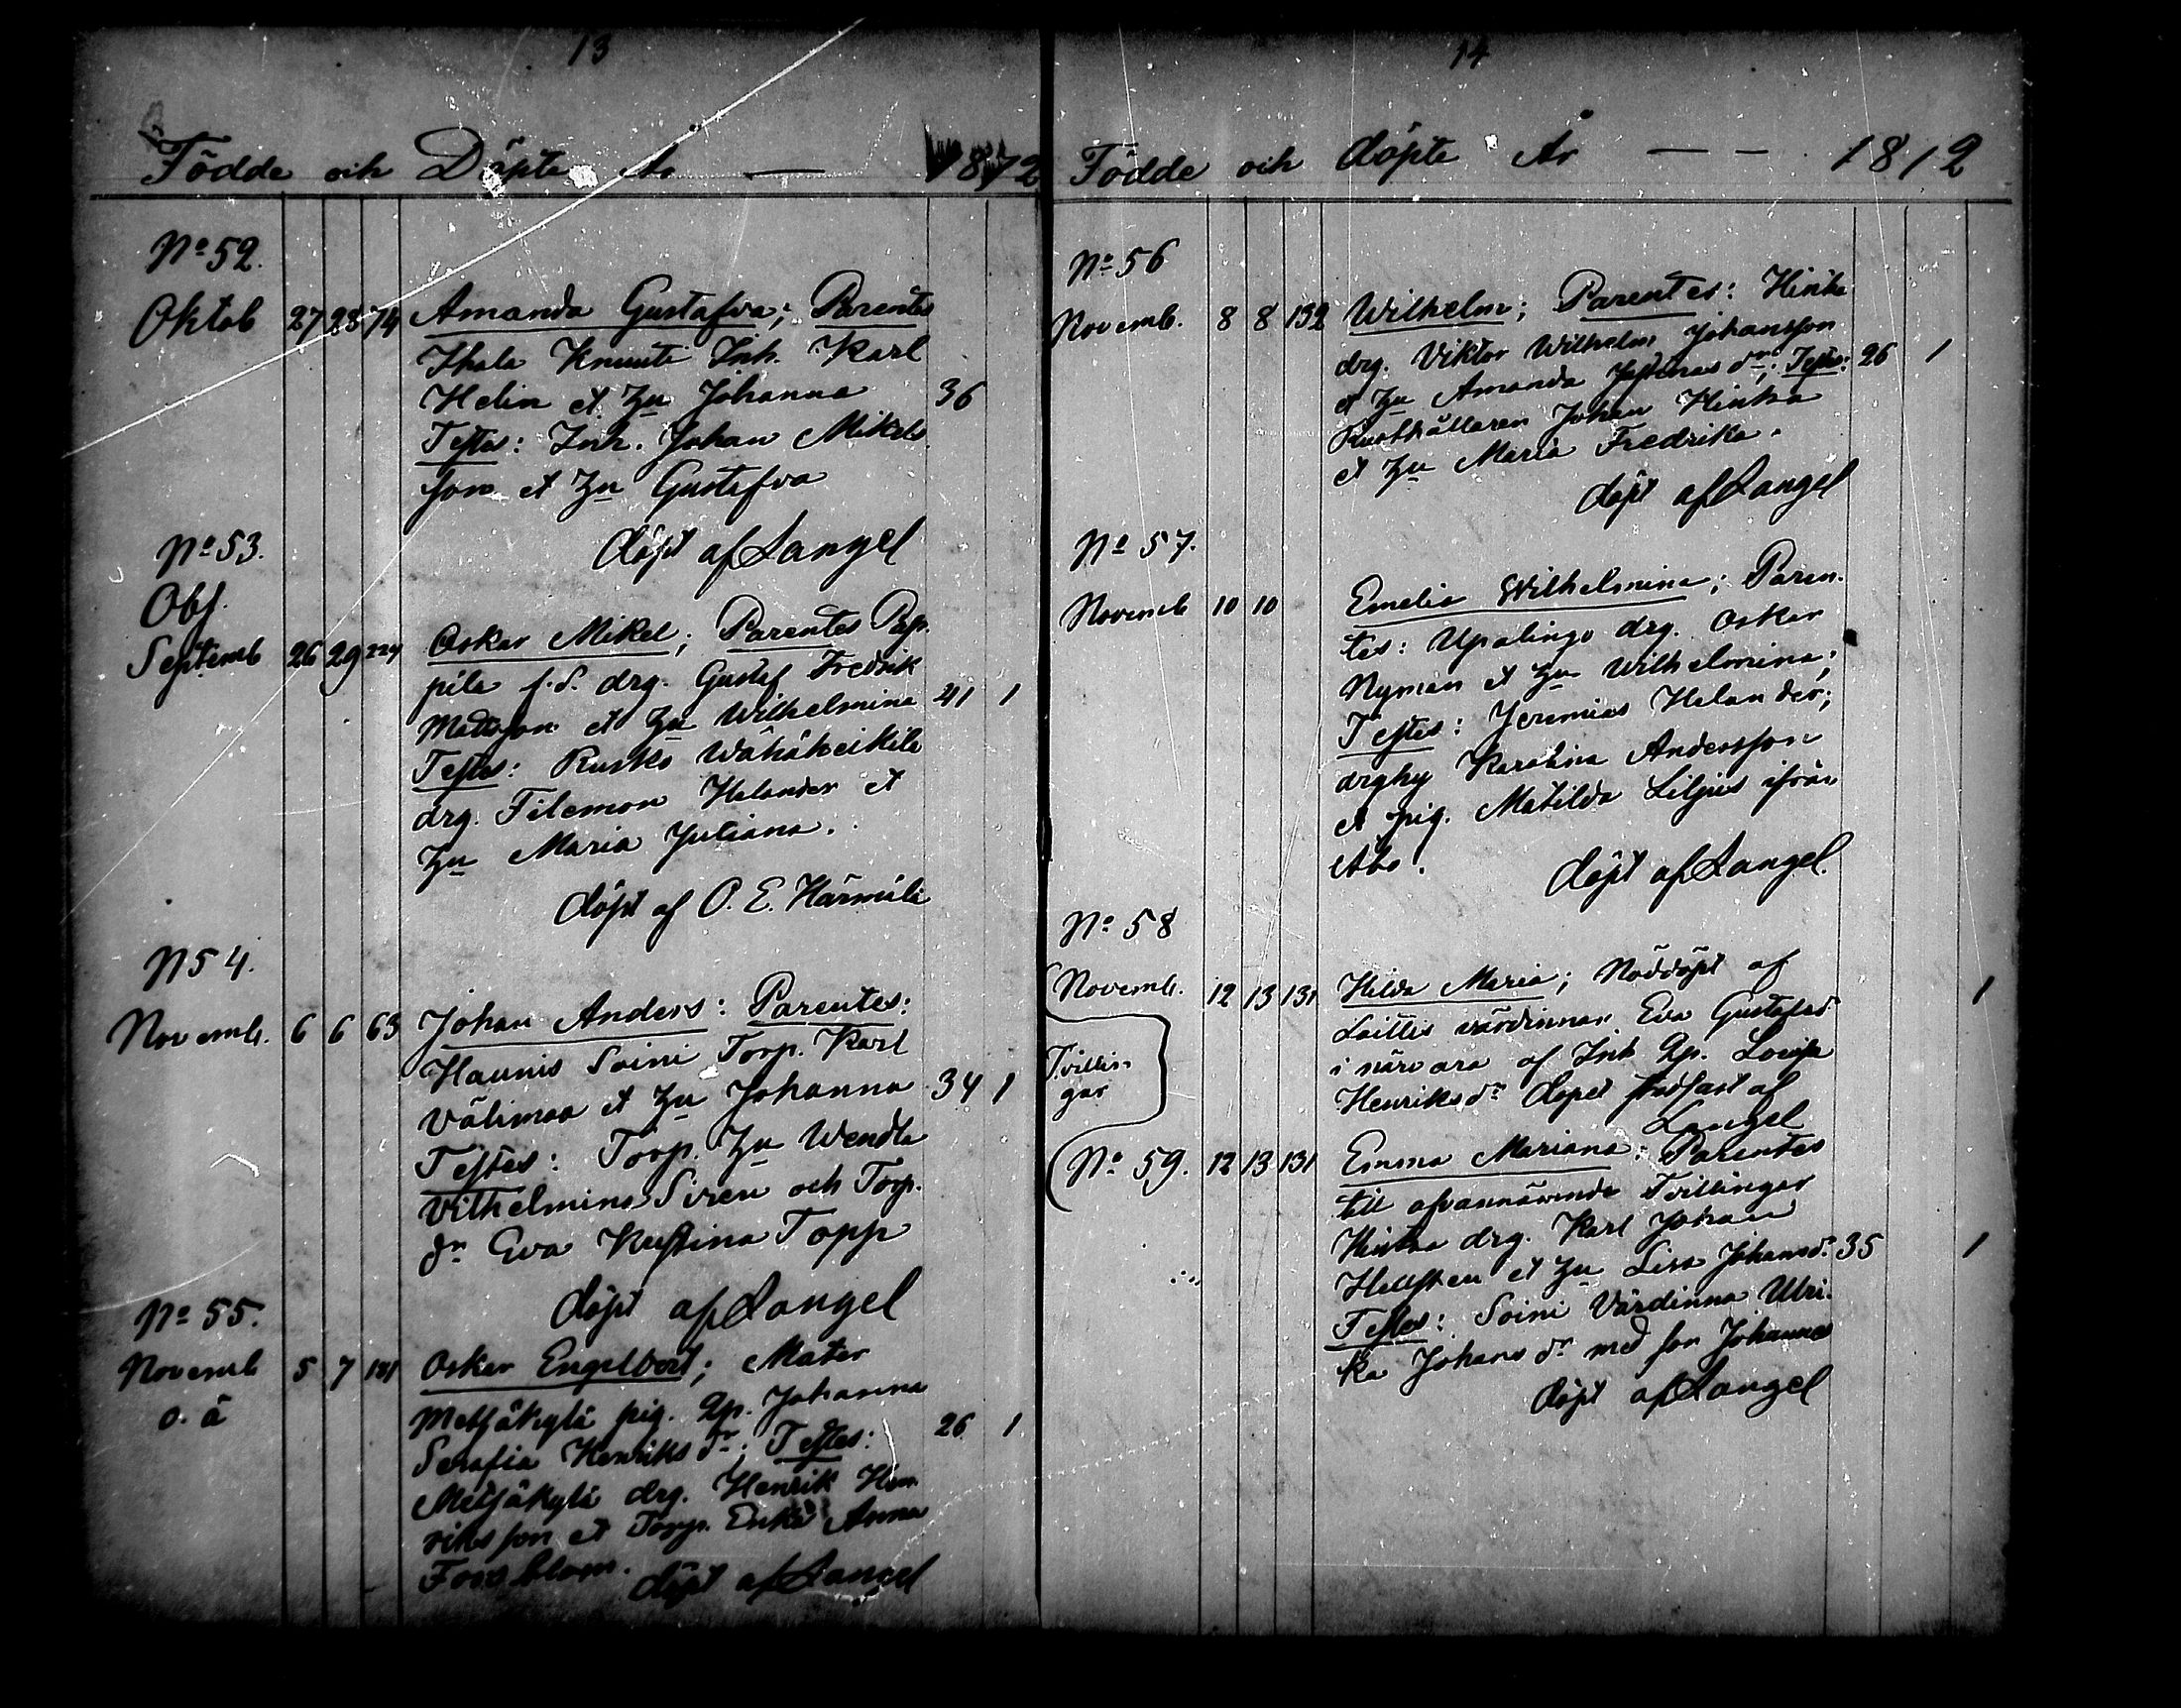 13
Födde och Döpte År — 1872
No 52.
Oktob 27 28 74 Amanda Gustafva; Parentes
Ihala Knuuti Inh. Karl
Helin et hu Johanna 36
Testes: Inh. Johan Mikels
son et hu Gustafva
döpt af Langel
No 53.
Obs.
Septemb 26 29 224 Oskar Mikel; Parentes Pap.
pila f.d. drg. Gustaf Fredrik
Mattsson et hu Wilhelmina 41 1
Testes: Rusko Wähäkeikila
drg. Filemon Helander et
hu Maria Juliana.
döpt af O. E. Härmälä
N 54.
Novemb. 6 6 63 Johan Anders: Parentes:
Haunis Soini Torp. Karl
Välimaa et hu Johanna 34 1
Testes: Torp. hu Wendla
Vilhelmina Siren och Torp.
dr Eva Kustina Topp
döpt af Langel
No 55.
Novemb 5 7 181 Oskar Engelbert; Mater
o. ä
Metsäkylä pig. Qp. Johanna
Serafia Henriks dr; Testes: 26 1
Metsäkylä drg. Henrik Hen
riksson et Torp. Enka Anna
Forsblom. döpt af Langel
14
Födde och döpte År — — 1872
No 56
Novemb. 8 8 132 Wilhelm; Parentes: Hinka
drg. Viktor Wilhelm Johansson
et hu Amanda dr; Testes: 26 1
Rusthållaren Johan Hinka
et hu Maria Fredrika.
döpt af Langel
No 57.
Novemb 10 10 Emelia Wilhelmina; Paren.
tes: Upalingo drg. Oskar
Nyman et hu Wilhelmina;
Testes: Jeremias Helander;
drghy Karolina Andersson
et pig. Matilda Liljus ifrån
Abo. döpt af Langel.
No 58
Novemb. 12 13 131 Hilda Maria; Nöddöpt af 1
Laittis värdinnan Eva Gustafsd.
i närvara af Inh Qp. Lovisa
Henriks dr dopet stadfäst af
Langel
Tvillin
gar
No 59. 12 13 131 Emma Mariana: Parentes
till ofvannämnde Tvillingar
Hinkaa drg. Karl Johan
Hellsten et hu Lisa Johansd. 35 1
Testes: Soini Värdinna Ulri.
ka Johans dr med son Johannes
döpt af Langel